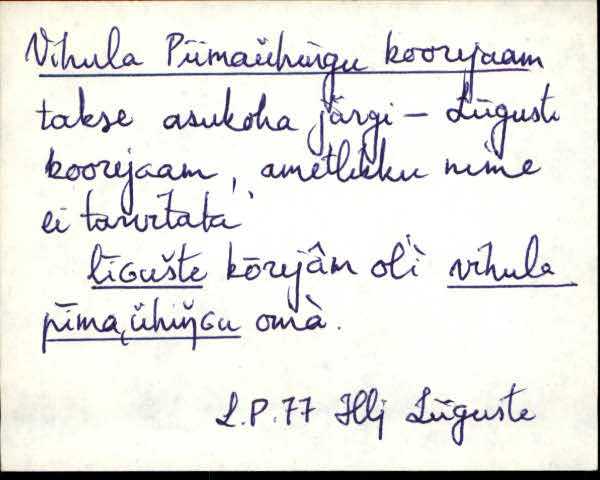 Vihula Piimaühingu koorejaam
takse asukoha järgi – Liiguste
koorejaam, ametlikku nime
ei tarvitata
līGušte kōrejâm oĺì vihula
pīma,ühiŋGu omà.
L.P.77 Hlj Liiguste